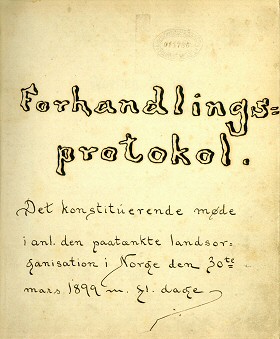 Forhandlings=
protokol.
Det konstituerende møde
i anl. den paatænkte landsor=
ganisation i Norge den 30te
mars 1899 m. fl. dage